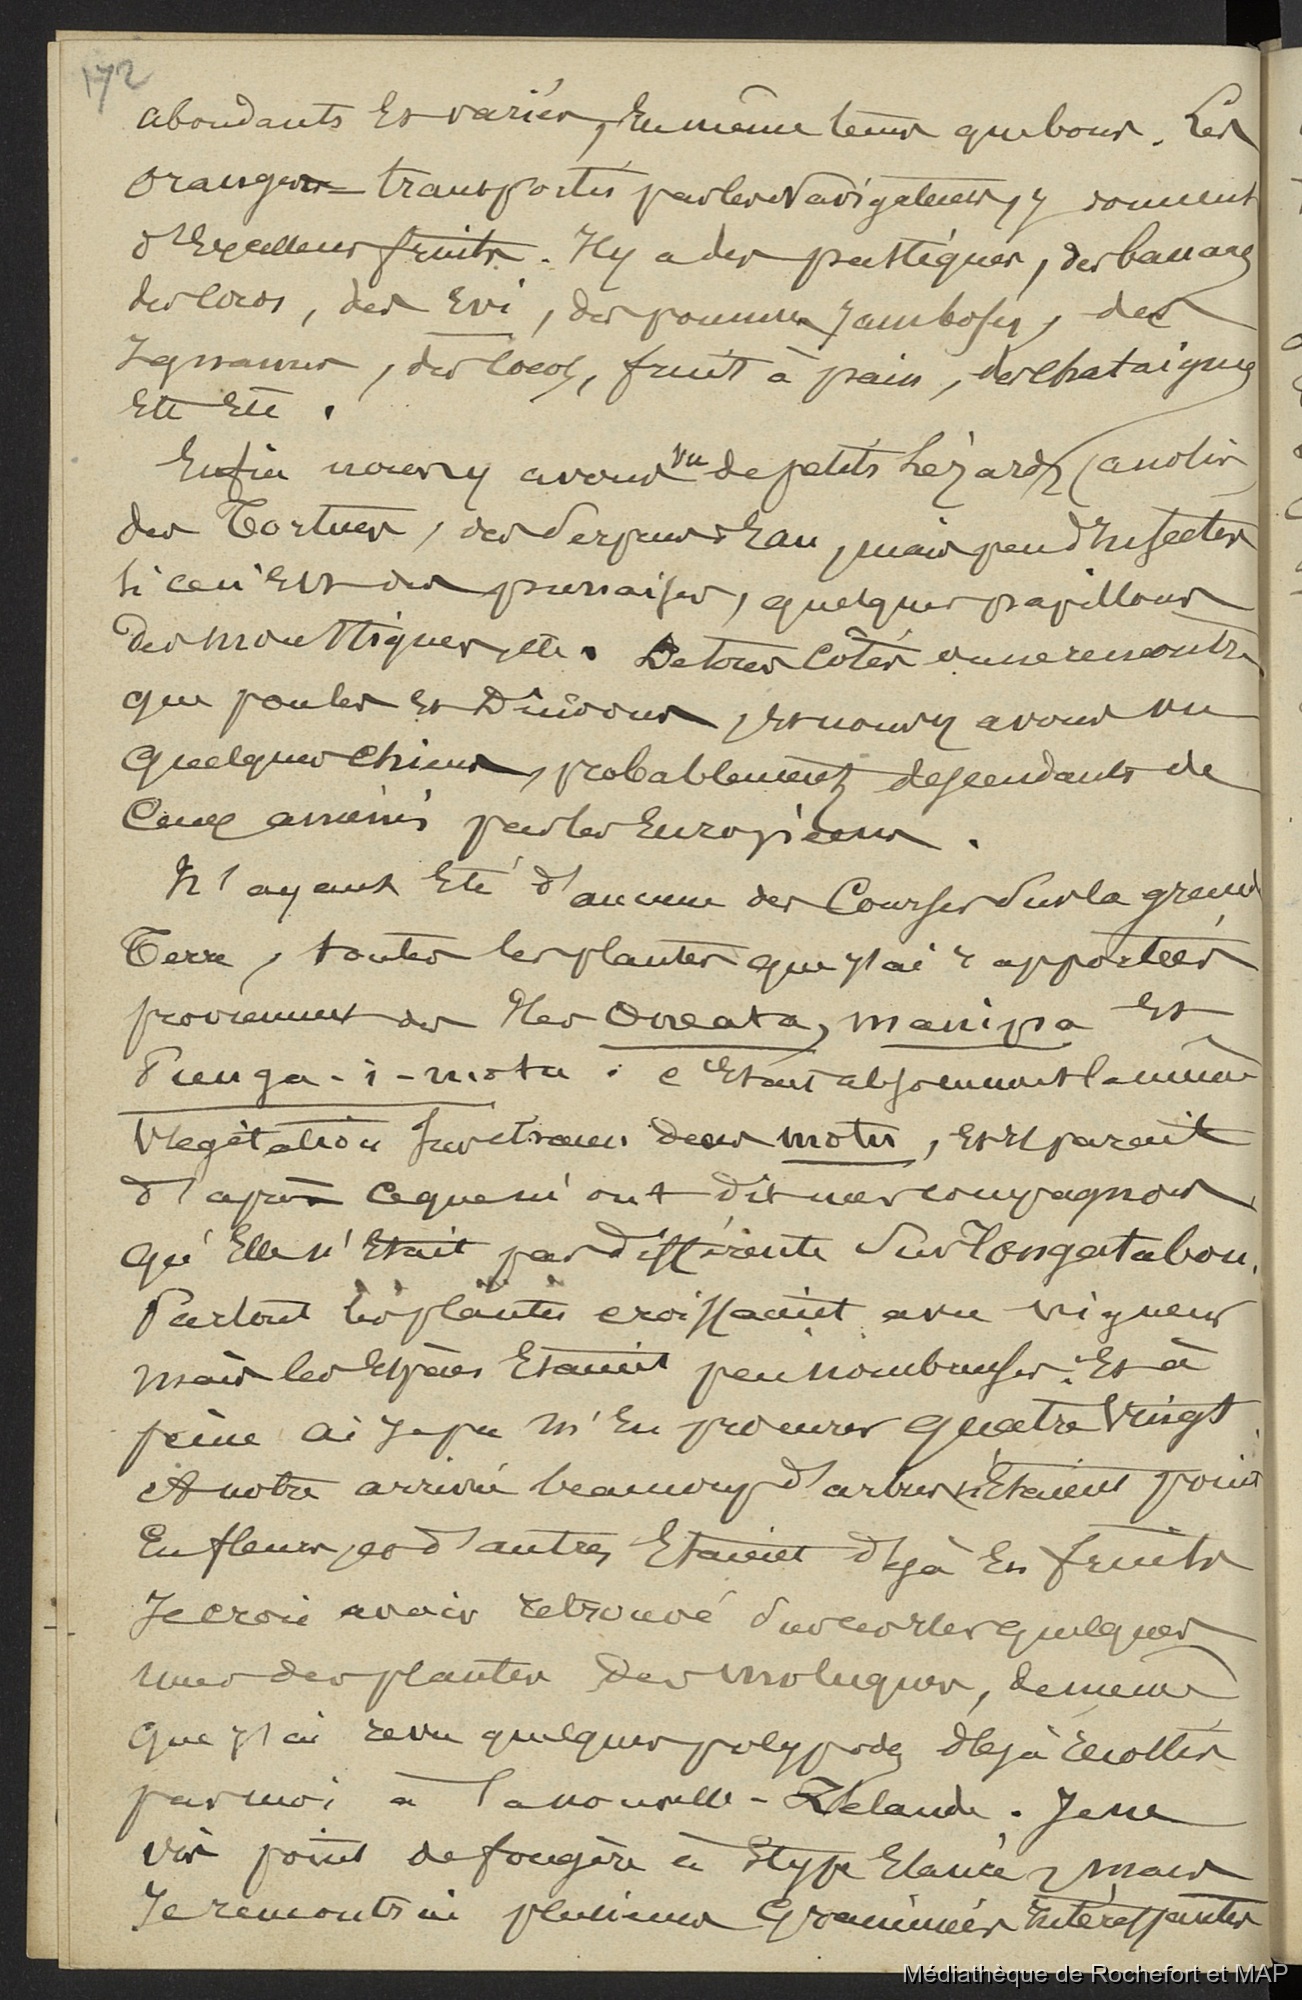 172
abondants et variés, en même tems que bons. Les
orangers transportés par les Navigateurs, y donnent
d'Excellens fruits. Il y a des pastéques, des bananes
des cocos, des Evi, des pommes jamboses, des
Ignames, des cocos, fruit à pain, des chataignes
etc etc.
Enfin nous n'y avons vu de petits Lézards (anolis
des Tortues, des Serpens d'Eau, mais peu d'Insectes
si ce n'est des punaises, quelques papillons
des moustiques, etc. De tous côtés on ne rencontre
que poules et Dindons, et nous y avons vu
quelques chiens, probablement descendants de
Ceux amenés par les Européens.
N'ayant Eté d'aucune des Courses sur la grande
Terre, toutes les plantes que j'ai rapportées
proviennent des Iles Oneata, manipa et
Panga-i-motu : c'Etait absolument la même
Végétation sur tous deux motus, et il parait
d'après ce que m'ont dit mes compagnons
qu'Elle n'Etait pas différente sur Tongatabou.
Partout les plantes croissaient avec vigueur
mais les Espèces Etaient peu nombreuses : Et à
peine ai je pu m'En procurer quatre Vingt
A notre arrivée beaucoup d'arbres n'Etaient point
En fleurs, et d'autres Etaient déjà En fruits
Je crois avoir retrouvé sur ces Iles quelques
unes des plantes des moluques, de même
que j'ai revu quelques polypodes déjà récoltés
par moi à la nouvelle-Zélande. Je ne
vis point de fougère à Stype Elancé, mais
Je rencontrai plusieurs Graminées Intéressantes
Médiathèque de Rochefort et MAP